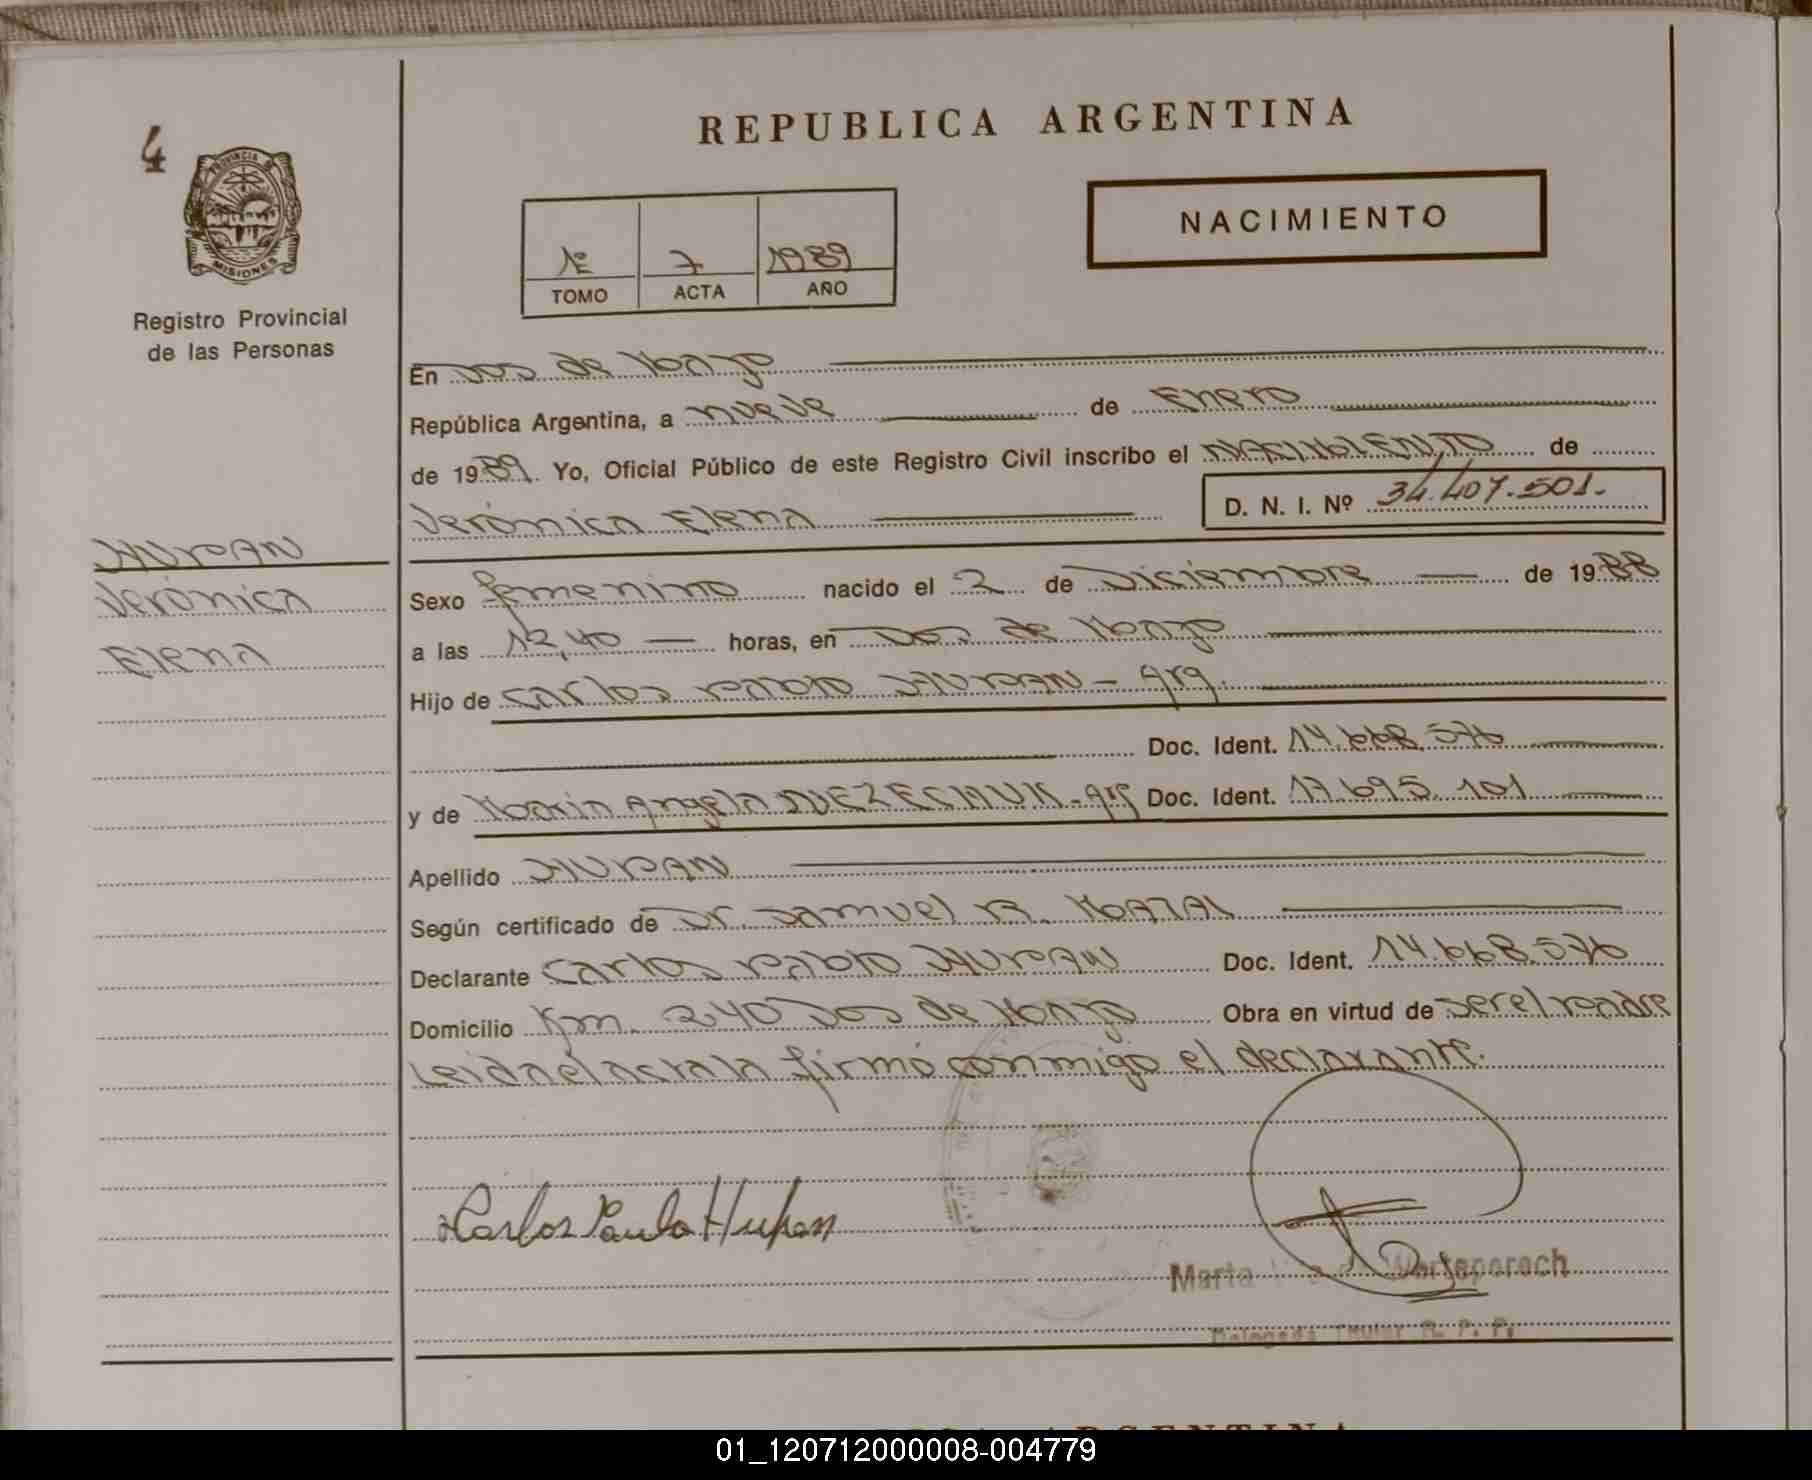 REPUBLICA ARGENTINA
4
PROVINCIA DE
MISIONES
NACIMIENTO
1º 7 1989
TOMO ACTA AÑO
Registro Provincial
de las Personas
En Dos de Mayo
República Argentina, a nueve de Enero
de 1989. Yo, Oficial Público de este Registro Civil inscribo el NACIMIENTO de
D. N. I. Nº 34.407.501.
Verónica Elena
HUPAN
Verónica
Elena
Sexo femenino nacido el 2 de Diciembre de 1988
a las 12,40 horas, en Dos de Mayo
Hijo de Carlos Pablo HUPAN - Arg.
Doc. Ident. 14.668.576
y de María Angela NIEZECHUK - Arg Doc. Ident. 17.695.101
Apellido HUPAN
Según certificado de Dr. Samuel R.
Declarante Carlos Pablo HUPAN Doc. Ident. 14.668.576
Domicilio Km. 240 Dos de Mayo Obra en virtud de ser el padre
Leida el acta la firmó conmigo el declarante.
Carlos Paulo Hupan
Marta
Delegada Titular R. P. P.
ARGENTINA
01_120712000008-004779